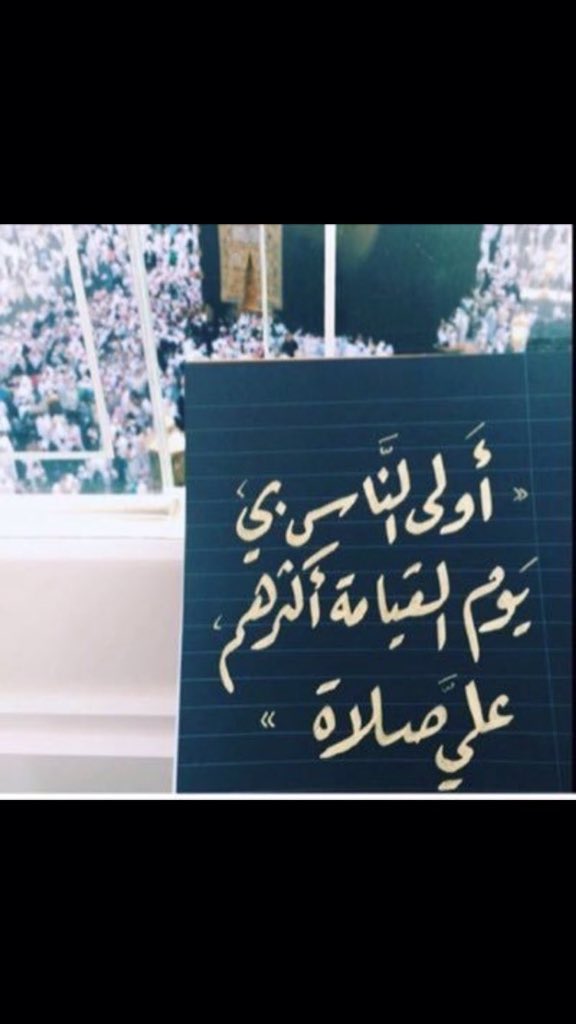 « أَولى النَّاس بي،
يَوم القيامة أكثرهم،
عليَّ صلاة »